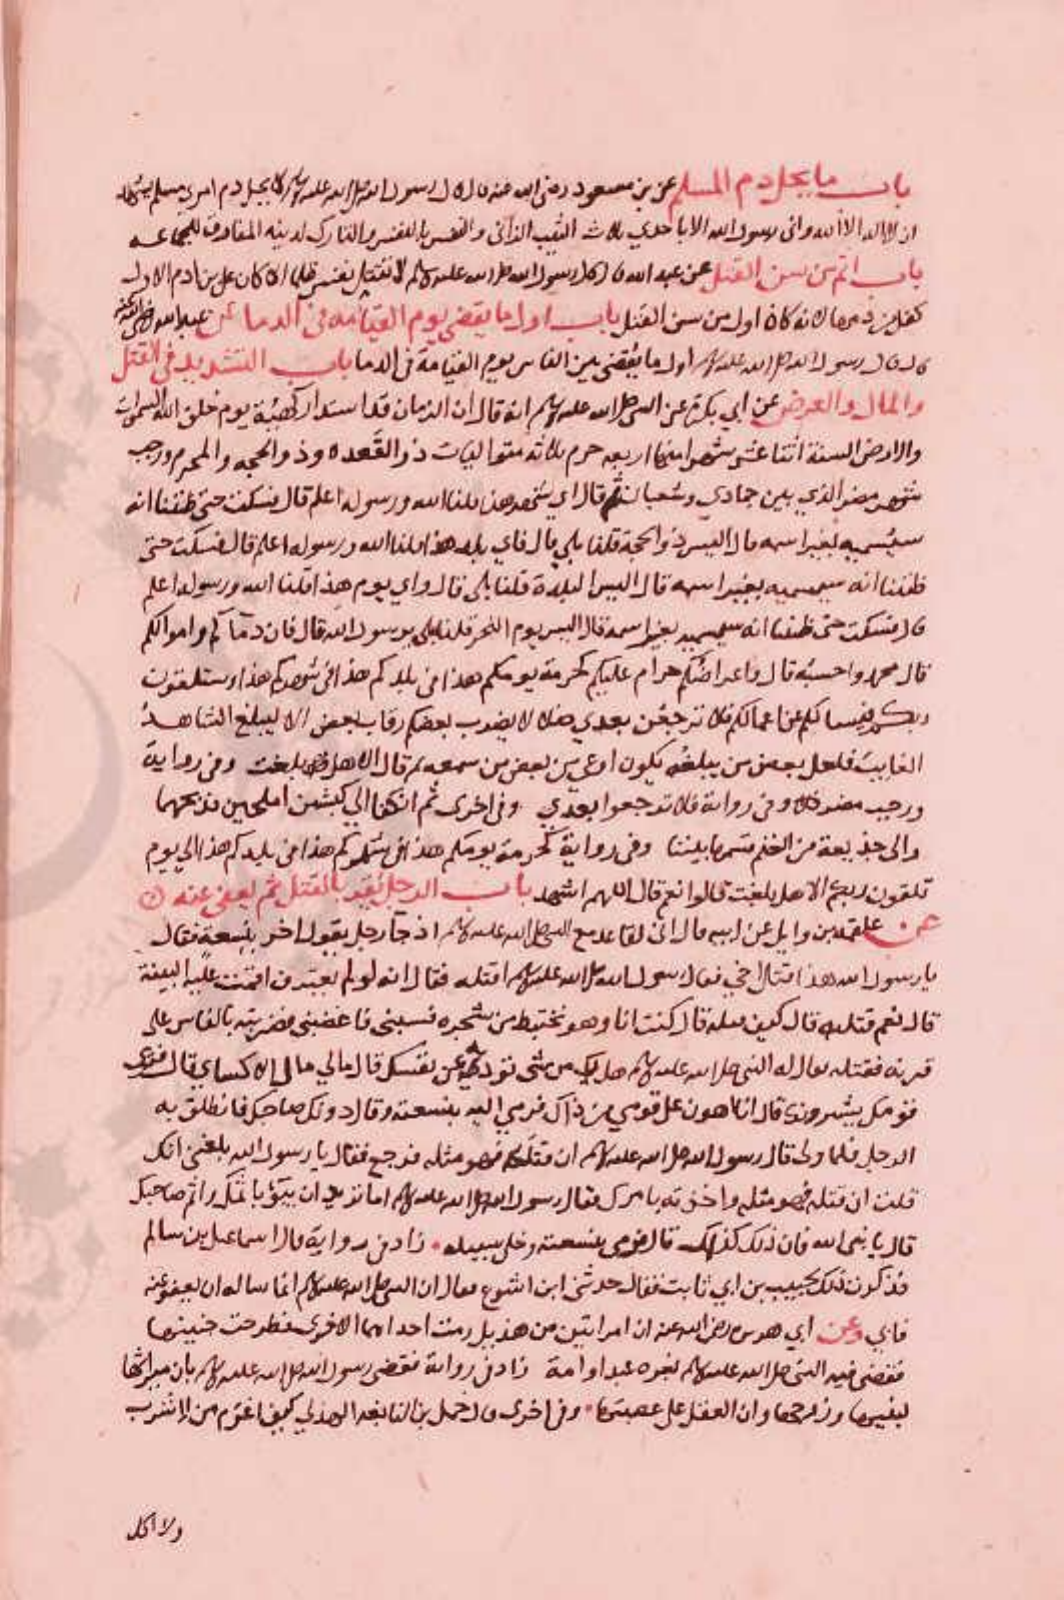 باب ما يحل دم المسلم عن بن مسعود رضى الله عنه قال قال رسول الله صلى الله عليه وسلم لا يحل دم امرئ مسلم يشهد
ان لا اله الا الله وانى رسول الله الا باحدى ثلاث الثيب الزانى والنفس بالنفس والتارك لدينه المفارق للجماعه
باب اثم من سن القتل عن عبد الله قال قال رسول الله صلى الله عليه وسلم لا تقتل نفس ظلما الا كان على بن ادم الاول
كفل من دمها لانه كان اول من سن القتل باب اول ما يقضى يوم القيامه فى الدما عن عبد الله رضى الله عنه
قال قال رسول الله صلى الله عليه وسلم اول ما يقضى بين الناس يوم القيامة فى الدما باب التشديد فى القتل
والمال والعرض عن ابي بكرة عن النبى صلى الله عليه وسلم انه قال ان الزمان قد استدار كهيئة يوم خلق الله السموات
والارض السنة اثنا عشر شهرا منها اربعه حرم ثلاثة متواليات ذو القعده وذو الحجه والمحرم ورجب
شهر مضر الذي بين جمادي وشعبان ثم قال اي شهر هذا قلنا الله ورسوله اعلم قال فسكت حتى ظننا انه
سيسميه بغير اسمه قال اليس ذو الحجة قلنا بلي قال فاي بلد هذا قلنا الله ورسوله اعلم قال فسكت حتى
ظننا انه سيسميه بغير اسمه قال اليس البلدة قلنا بلى قال واي يوم هذا قلنا الله ورسوله اعلم
قال فسكت حتى ظننا انه سيسميه بغير اسمه قال اليس يوم النحر قلنا بلى يرسول الله قال فان دماكم واموالكم
قال محمد واحسبه قال واعراضكم حرام عليكم كحرمة يومكم هذا فى بلدكم هذا فى شهركم هذا وستلقون
ربكم فيسالكم عن اعمالكم فلا ترجعن بعدي ضلالا يضرب بعضكم رقاب بعض الا ليبلغ الشاهد
الغايب فلعل بعض من يبلغه يكون اوعي من بعض من سمعه ثم قال الا هل بلغت وفى رواية
ورجب مضر وفى رواية فلا ترجعوا بعدي وفى اخرى ثم انكفا الي كبشين املحين فذبحهما
والى جذيعة من الغنم فقسمها بيننا وفى رواية كحرمة يومكم هذا فى شهركم هذا فى بلدكم هذا الي يوم
تلقون ربكم الا هل بلغت قالوا نعم قال اللهم اشهد باب الرجل يقر بالقتل ثم يعفى عنه
عن علقمة بن وايل عن ابيه قال انى لقاعد مع النبى صلى الله عليه وسلم اذ جآ رجل يقود اخر بنسعة فقال
يا رسول الله هذا قتل اخي فقال رسول الله صلى الله عليه وسلم اقتلته فقال انه لو لم يعترف اقمت عليه البينة
قال نعم قتلته قال كيف قتلته قال كنت انا وهو نختبط من شجره فسبنى فاغضبنى فضربته بالفاس على
قرنه فقتلته فقال له النبى صلى الله عليه وسلم هل لك من شى تؤديه عن نفسك قال مالي مال الا كساي قال فترى
قومك يشترونك قال انا اهون على قومي من ذاك فرمي اليه بنسعته وقال دونك صاحبك فانطلق به
الرجل فلما ولى قال رسول الله صلى الله عليه وسلم ان قتله فهو مثله فرجع فقال يا رسول الله بلغنى انك
قلت ان قتله فهو مثله واخذته بامرك فقال رسول الله صلى الله عليه وسلم اما تريد ان يبؤ باثمك واثم صاحبك
قال يا نبى الله فان ذلك كذلك قال فرمى بنسعته وخلى سبيله زاد فى رواية قال اسماعيل بن سالم
فذكرت ذلك لحبيب بن ابي ثابت فقال حدثنى ابن اشوع فقال ان النبى صلى الله عليه وسلم انما ساله ان يعفو عنه
فابي وعن ابي هريره رضى الله عنه ان امراتين من هذيل رمت احداهما الاخرى فطرحت جنينها
فقضى فيه النبى صلى الله عليه وسلم بغره عبد او امة زاد فى رواية فقضى رسول الله صلى الله عليه وسلم بان ميراثها
لبنيها وزوجها وان العقل على عصبتها وفى اخرى قال حمل بن النابغه الهذلي كيف اغرم من لا شرب
ولا اكل